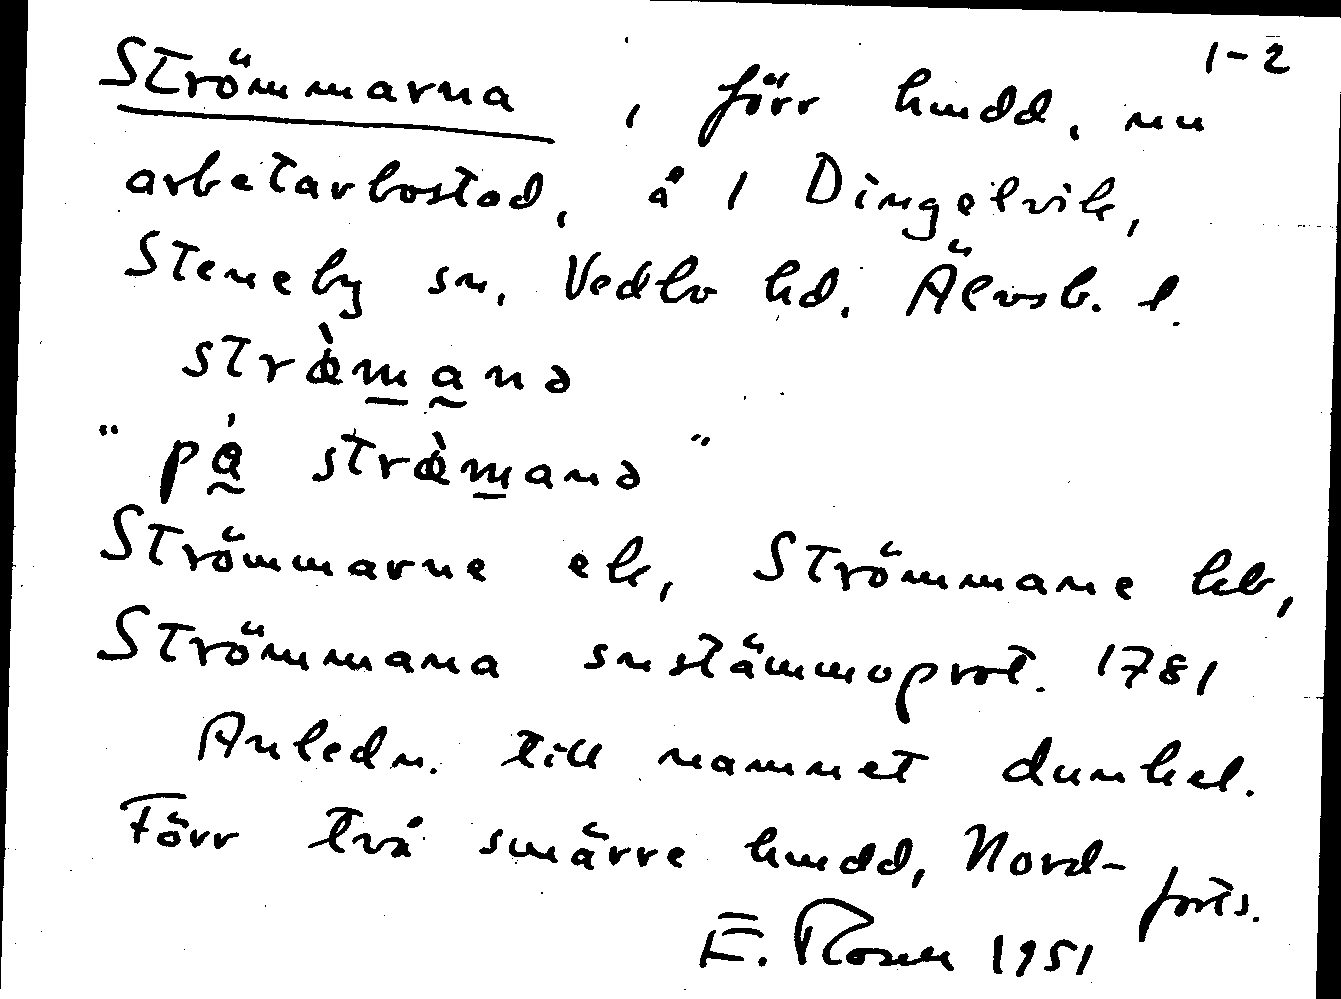 1-2
Strömmarna, förr hmdd, nu
arbetarbostad, å 1 Dingelvik,
Steneby sn, Vedbo hd. Älvsb. l.
stræ̀mana
"på stræ̀mana"
Strömmarne ek, Strömmane kb,
Strömmana snstämmoprot. 1781
Anledn. till namnet dunkel.
Förr två smärre hmdd, Nord-
forts.
E. 1951